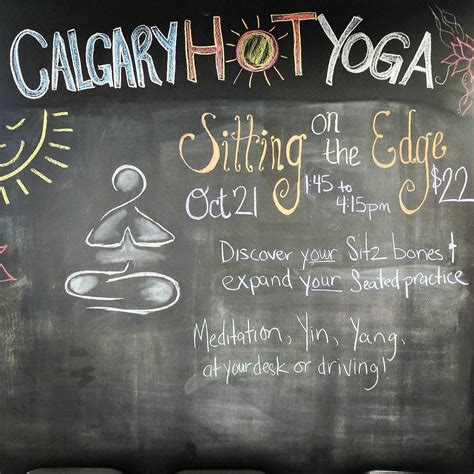 CALGARY HOT YOGA
Sitting on the Edge
Oct 21 1:45 to 4:15pm $22
Discover your Sitz bones +
expand your Seated practice
Meditation, Yin, Yang,
at your desk or driving!